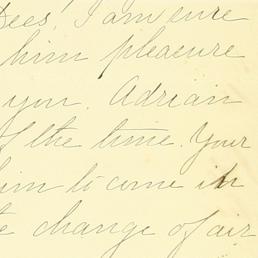 Dees! I am sure
him pleasure
you. Adrian
of the time. Your
him to come in
change of air